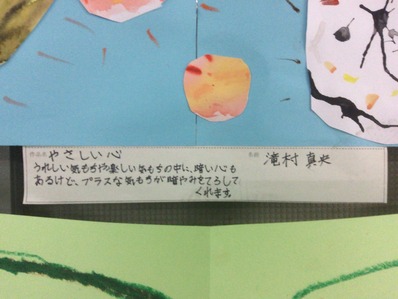 やさしい心
滝村 真央
うれしい気もちや楽しい気もちの中に、暗い心も
あるけど、プラスな気もちが暗やみをてらして
くれます